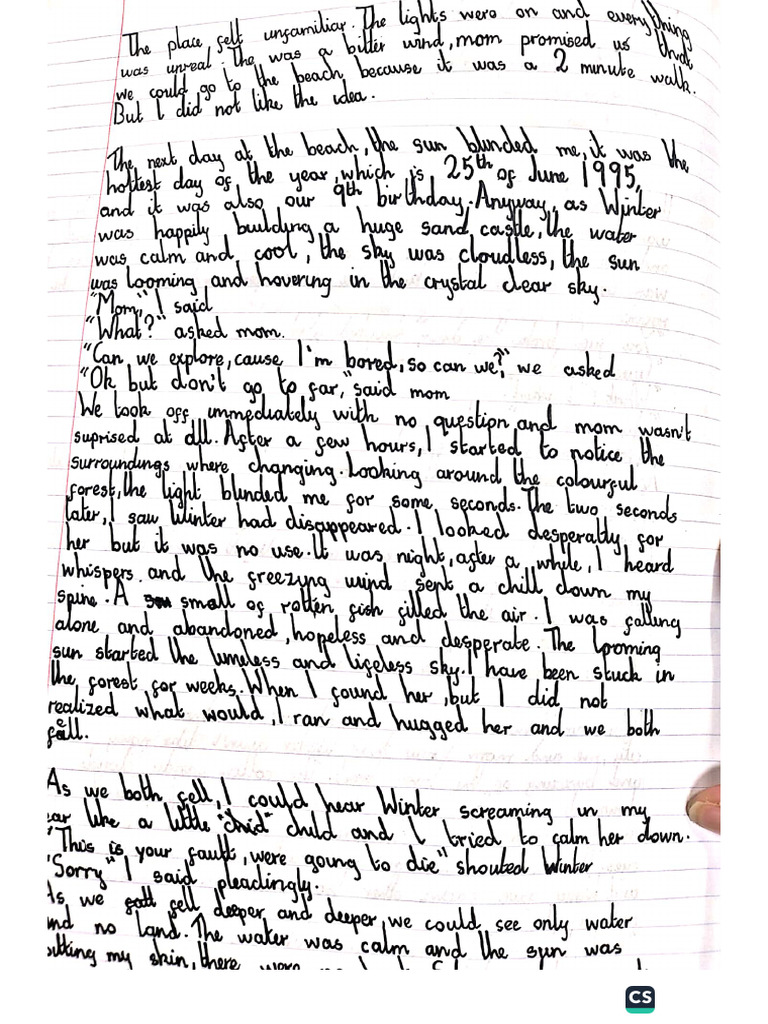 The place felt unfamiliar. The lights were on and everything
was unreal. The was a bitter wind, mom promised us that
we could go to the beach, because it was a 2 minute walk.
But I did not like the idea.
The next day at the beach, the sun blinded me, it was the
hottest day of the year, which is 25th of June 1995,
and it was also our 9th birthday. Anyway, as Winter
was happily building a huge sand castle, the water
was calm and cool, the sky was cloudless, the sun
was looming and hovering in the crystal clear sky.
"Mom," I said
"What?" asked mom.
"Can we explore, cause I'm bored, so can we?" we asked
"Ok but don't go to far," said mom
We took off immediately with no question and mom wasn't
suprised at all. After a few hours, I started to notice the
surroundings where changing. Looking around the colourful
forest, the light blinded me for some seconds. The two seconds
later, I saw Winter had disappeared. I looked desperatly for
her but it was no use. It was night, after a while, I heard
whispers and the freezing wind sent a chill down my
spine. A small of rotten fish filled the air. I was falling
alone and abandoned, hopeless and desperate. The looming
sun started the timeless and lifeless sky. I have been stuck in
the forest for weeks. When I found her, but I did not
realized what would, I ran and hugged her and we both
fell.
As we both fell, I could hear Winter screaming in my
ear like a little child and I tried to calm her down.
"This is your fault, were going to die" shouted Winter
"Sorry" I said pleadingly.
As we fell deeper and deeper we could see only water
and no land. The water was calm and the sun was
my skin, there were
CS